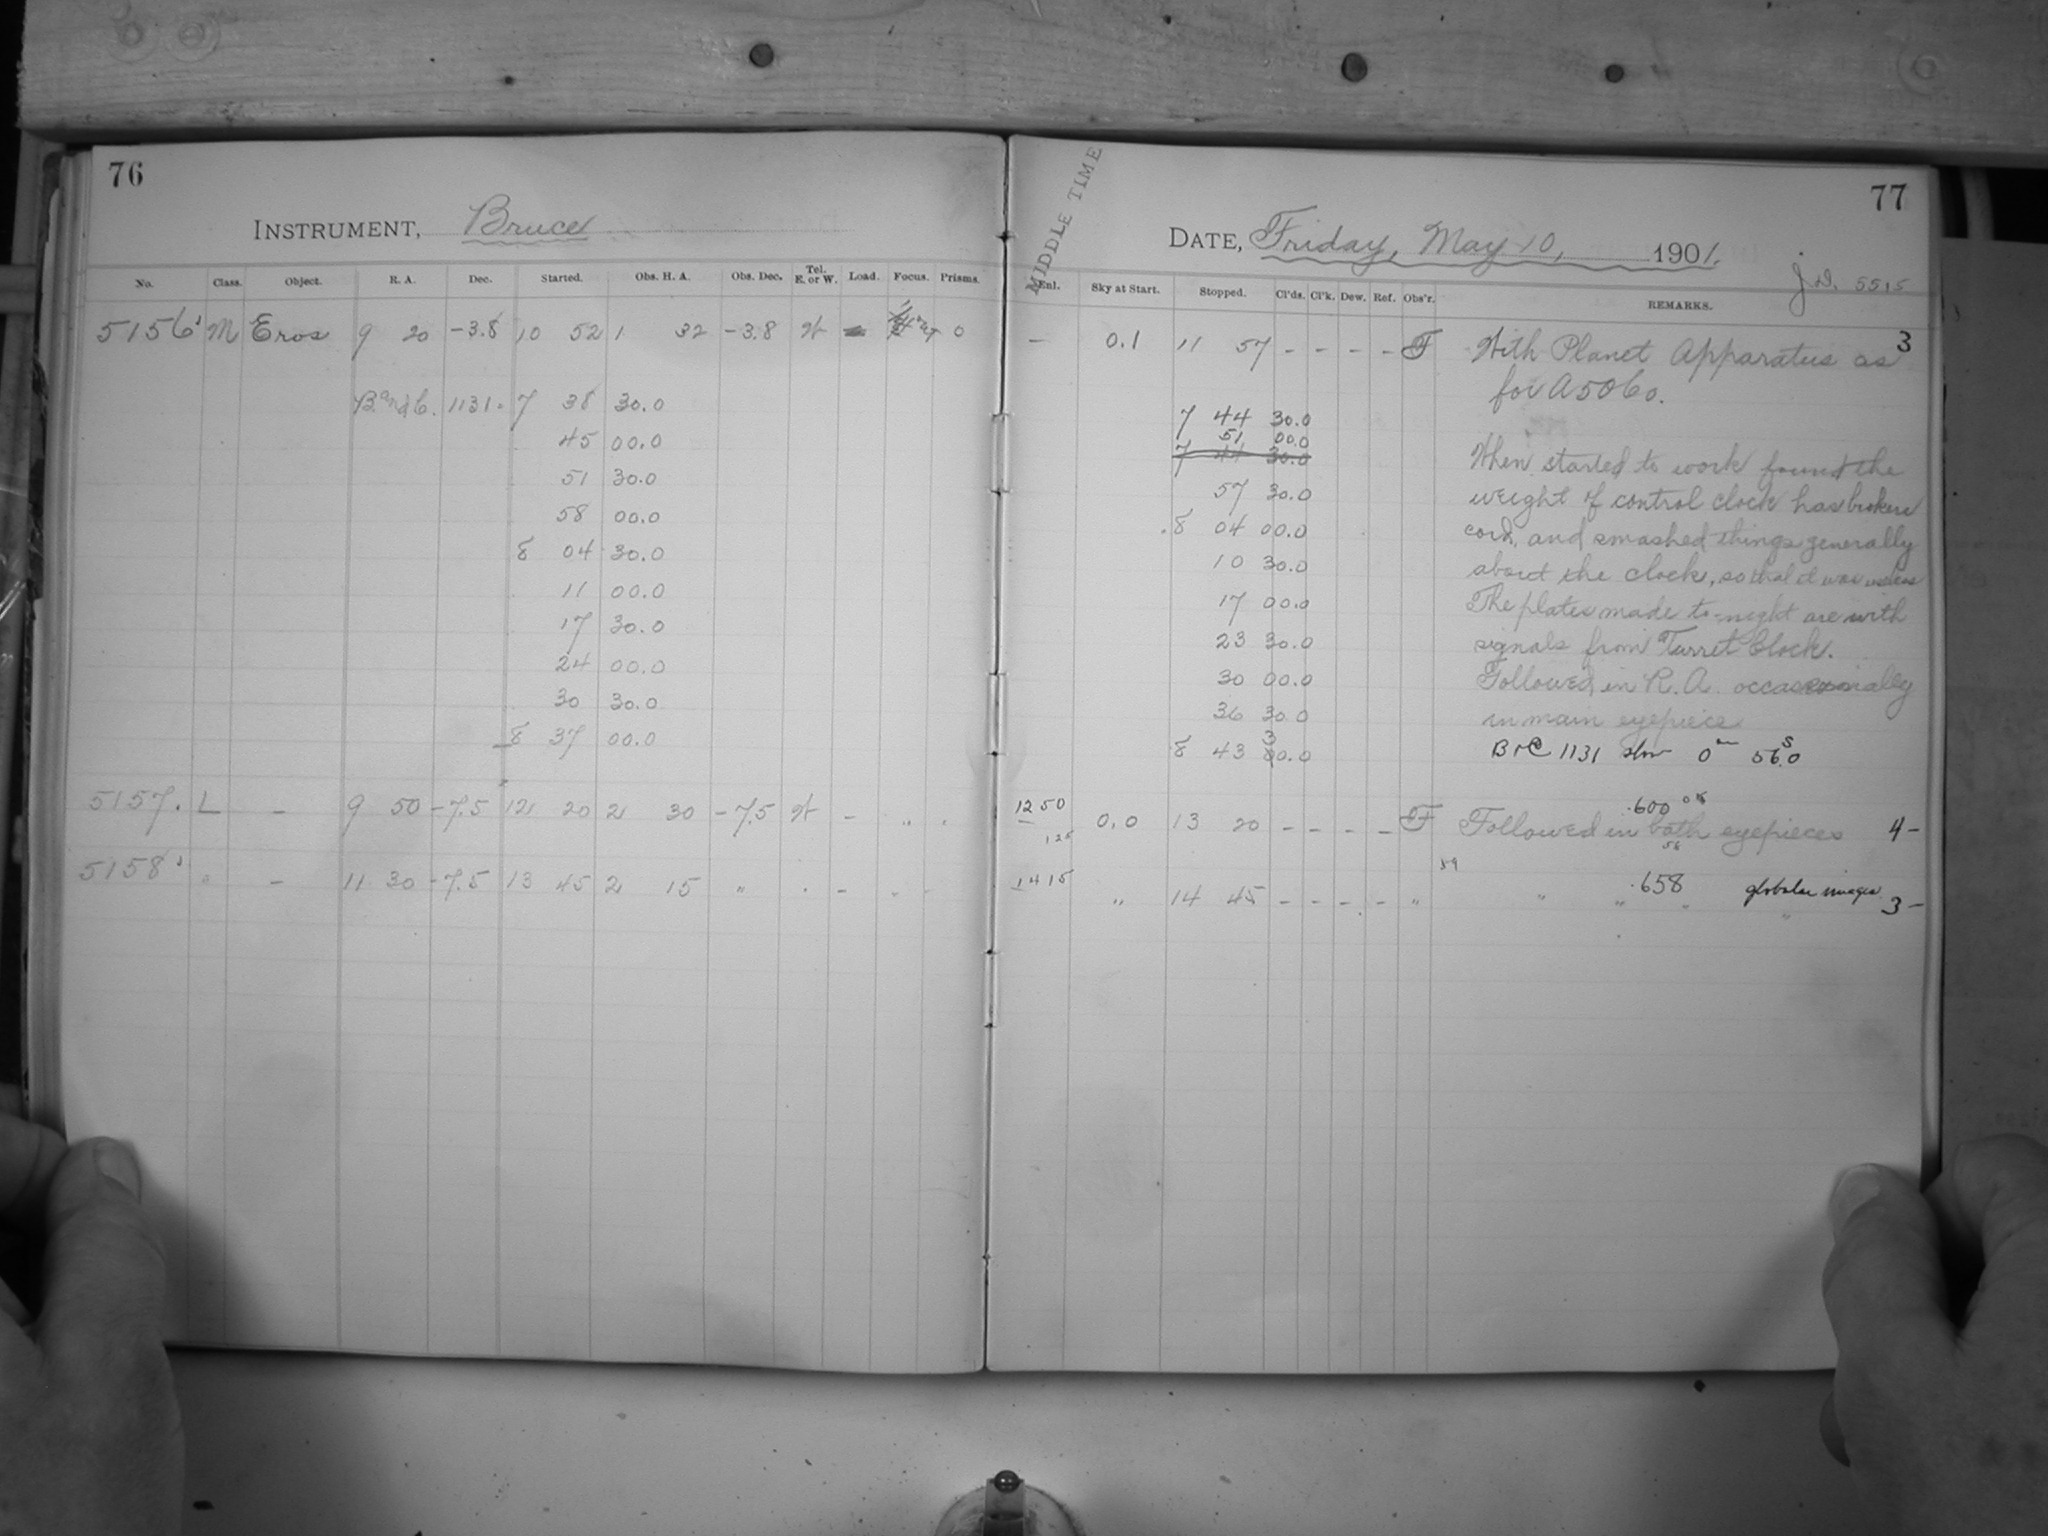 76
INSTRUMENT, Bruce
No. Class. Object. R. A. Dec. Started. Obs. H. A. Obs. Dec. Tel. E. or W. Load. Focus. Prisms.
5156 M Eros 9 20 -3.8 10 52 1 32 -3.8 W 0
B and C. 1131. 7 38 30.0
45 00.0
51 30.0
58 00.0
8 04 30.0
11 00.0
17 30.0
24 00.0
30 30.0
8 37 00.0
5157. L - 9 50 -7.5 12 20 2 30 -7.5 W - " "
5158 " - 11 30 -7.5 13 45 2 15 " " - " "
77
MIDDLE TIME
DATE, Friday, May 10, 1901.
J.D. 5515
Enl. Sky at Start. Stopped. Cl'ds. Cl'k. Dew. Ref. Obs'r. REMARKS.
- 0.1 11 57 - - - - F With Planet Apparatus as 3
for A5060.
7 44 30.0
51 00.0
7 44 30.0
When started to work found the
57 30.0 weight of control clock has broken
8 04 00.0 cord, and smashed things generally
10 30.0 about the clock, so that it was useless
17 00.0 The plates made to-night are with
23 30.0 signals from Turret Clock.
30 00.0 Followed in R. A. occasionally
36 30.0 in main eyepiece
8 43 30.0 B & C 1131 slow 0m 56.0s
.600
1250 0.0 13 20 - - - - F Followed in both eyepieces 4-
125 58
59
1415 " 14 45 - - - - " " " " .658 globular images 3-